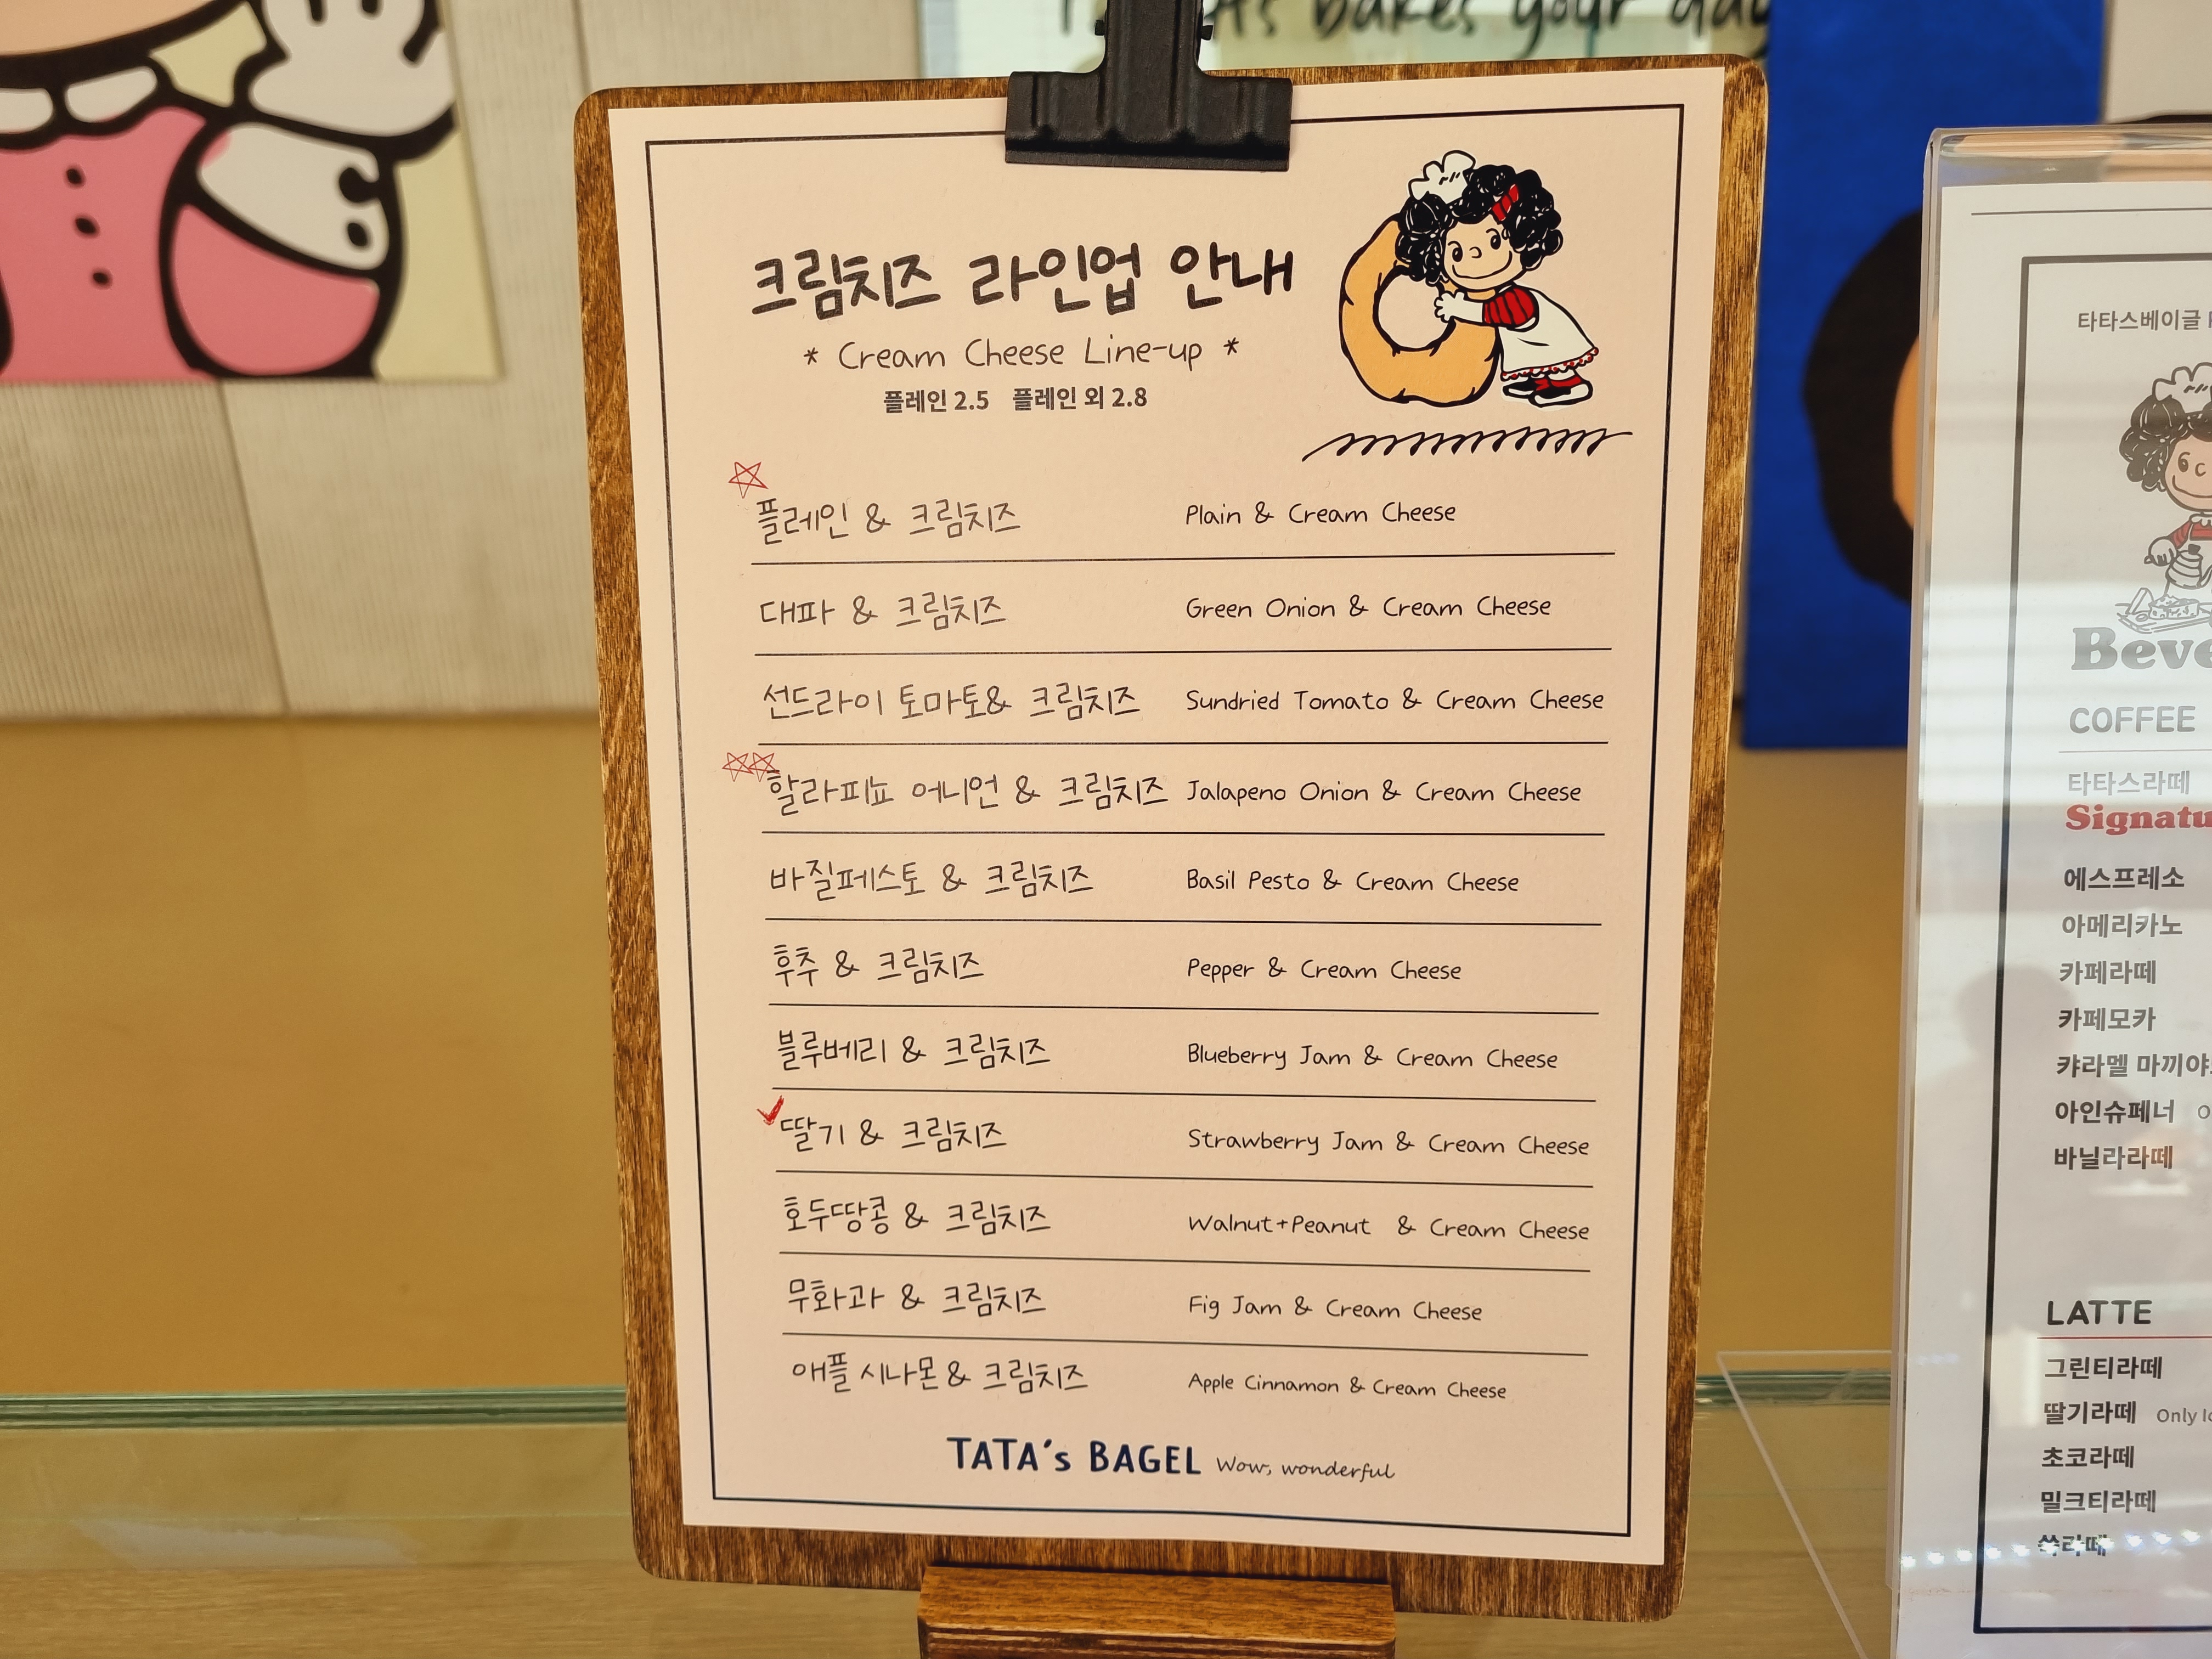 bakes your day
크림치즈 라인업 안내
* Cream Cheese Line-up *
플레인 2.5 플레인 외 2.8
플레인 & 크림치즈 Plain & Cream Cheese
대파 & 크림치즈 Green Onion & Cream Cheese
선드라이 토마토& 크림치즈 Sundried Tomato & Cream Cheese
할라피뇨 어니언 & 크림치즈 Jalapeno Onion & Cream Cheese
바질페스토 & 크림치즈 Basil Pesto & Cream Cheese
후추 & 크림치즈 Pepper & Cream Cheese
블루베리 & 크림치즈 Blueberry Jam & Cream Cheese
딸기 & 크림치즈 Strawberry Jam & Cream Cheese
호두땅콩 & 크림치즈 Walnut+Peanut & Cream Cheese
무화과 & 크림치즈 Fig Jam & Cream Cheese
애플 시나몬 & 크림치즈 Apple Cinnamon & Cream Cheese
TATA's BAGEL Wow, wonderful
타타스베이글
COFFEE
타타스라떼
에스프레소
아메리카노
카페라떼
카페모카
캬라멜
아인슈페너
바닐라라떼
LATTE
그린티라떼
딸기라떼 Only
초코라떼
밀크티라떼
쑥라떼